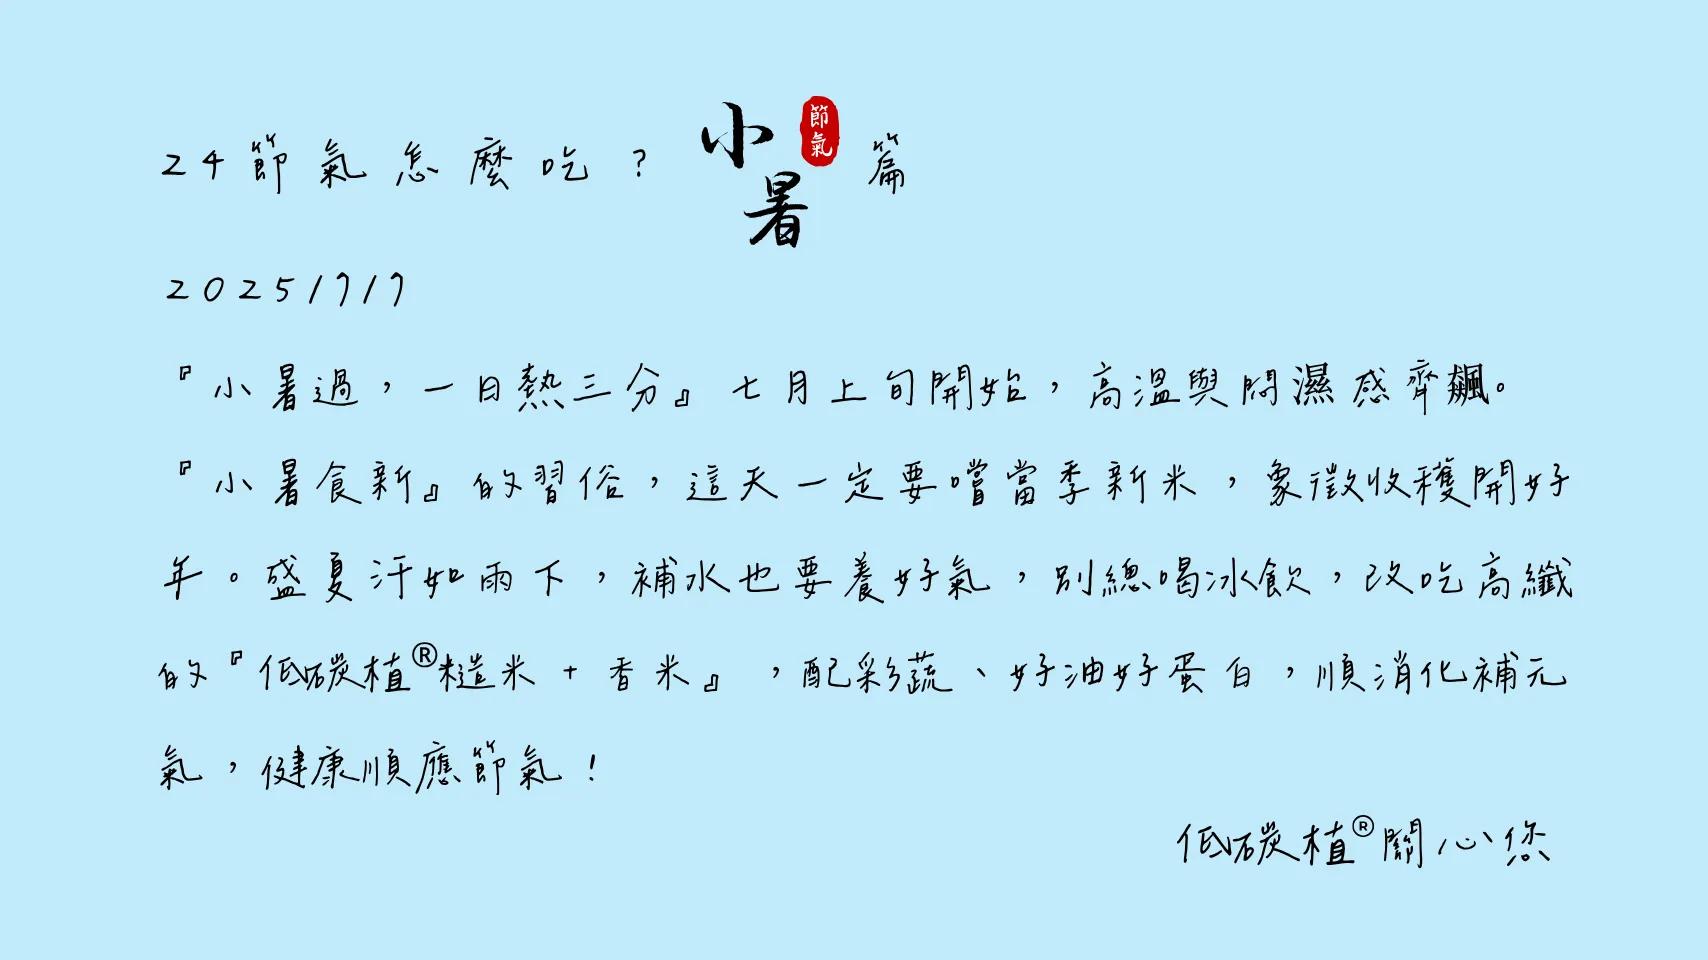 24節氣怎麼吃？小暑節氣篇
2025/7/7
『小暑過，一日熱三分』七月上旬開始，高溫與悶濕感齊飆。
『小暑食新』的習俗，這天一定要嚐當季新米，象徵收穫開好
年。盛夏汗如雨下，補水也要養好氣，別總喝冰飲，改吃高纖
的『低碳植®糙米+香米』，配彩蔬、好油好蛋白，順消化補元
氣，健康順應節氣！
低碳植®關心您